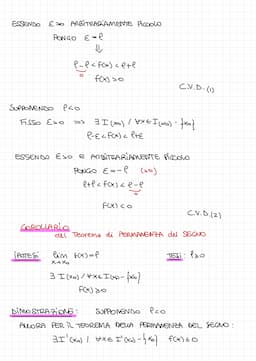 ESSENDO ε>0 ARBITRARIAMENTE PICCOLO
PONGO ε=ℓ
⇓
ℓ-ℓ < f(x) < ℓ+ℓ
0
f(x)>0
C.V.D. (1)
SUPPONENDO ℓ<0
FISSO ε>0 ⇒ ∃ I(x₀) / ∀x∈I(x₀) - {x₀}
ℓ-ε < f(x) < ℓ+ε
ESSENDO ε>0 E ARBITRARIAMENTE PICCOLO
PONGO ε=-ℓ (>0)
ℓ+ℓ < f(x) < ℓ-ℓ
0
f(x)<0
C.V.D. (2)
COROLLARIO
del Teorema di PERMANENZA del SEGNO
IPOTESI: lim f(x)=ℓ TESI: ℓ≥0
x→x₀
∃ I(x₀) / ∀x∈I(x₀)-{x₀}
f(x)≥0
DIMOSTRAZIONE: SUPPONENDO ℓ<0
ALLORA PER IL TEOREMA DELLA PERMANENZA DEL SEGNO:
∃ I'(x₀) / ∀x∈I'(x₀)-{x₀} f(x)<0